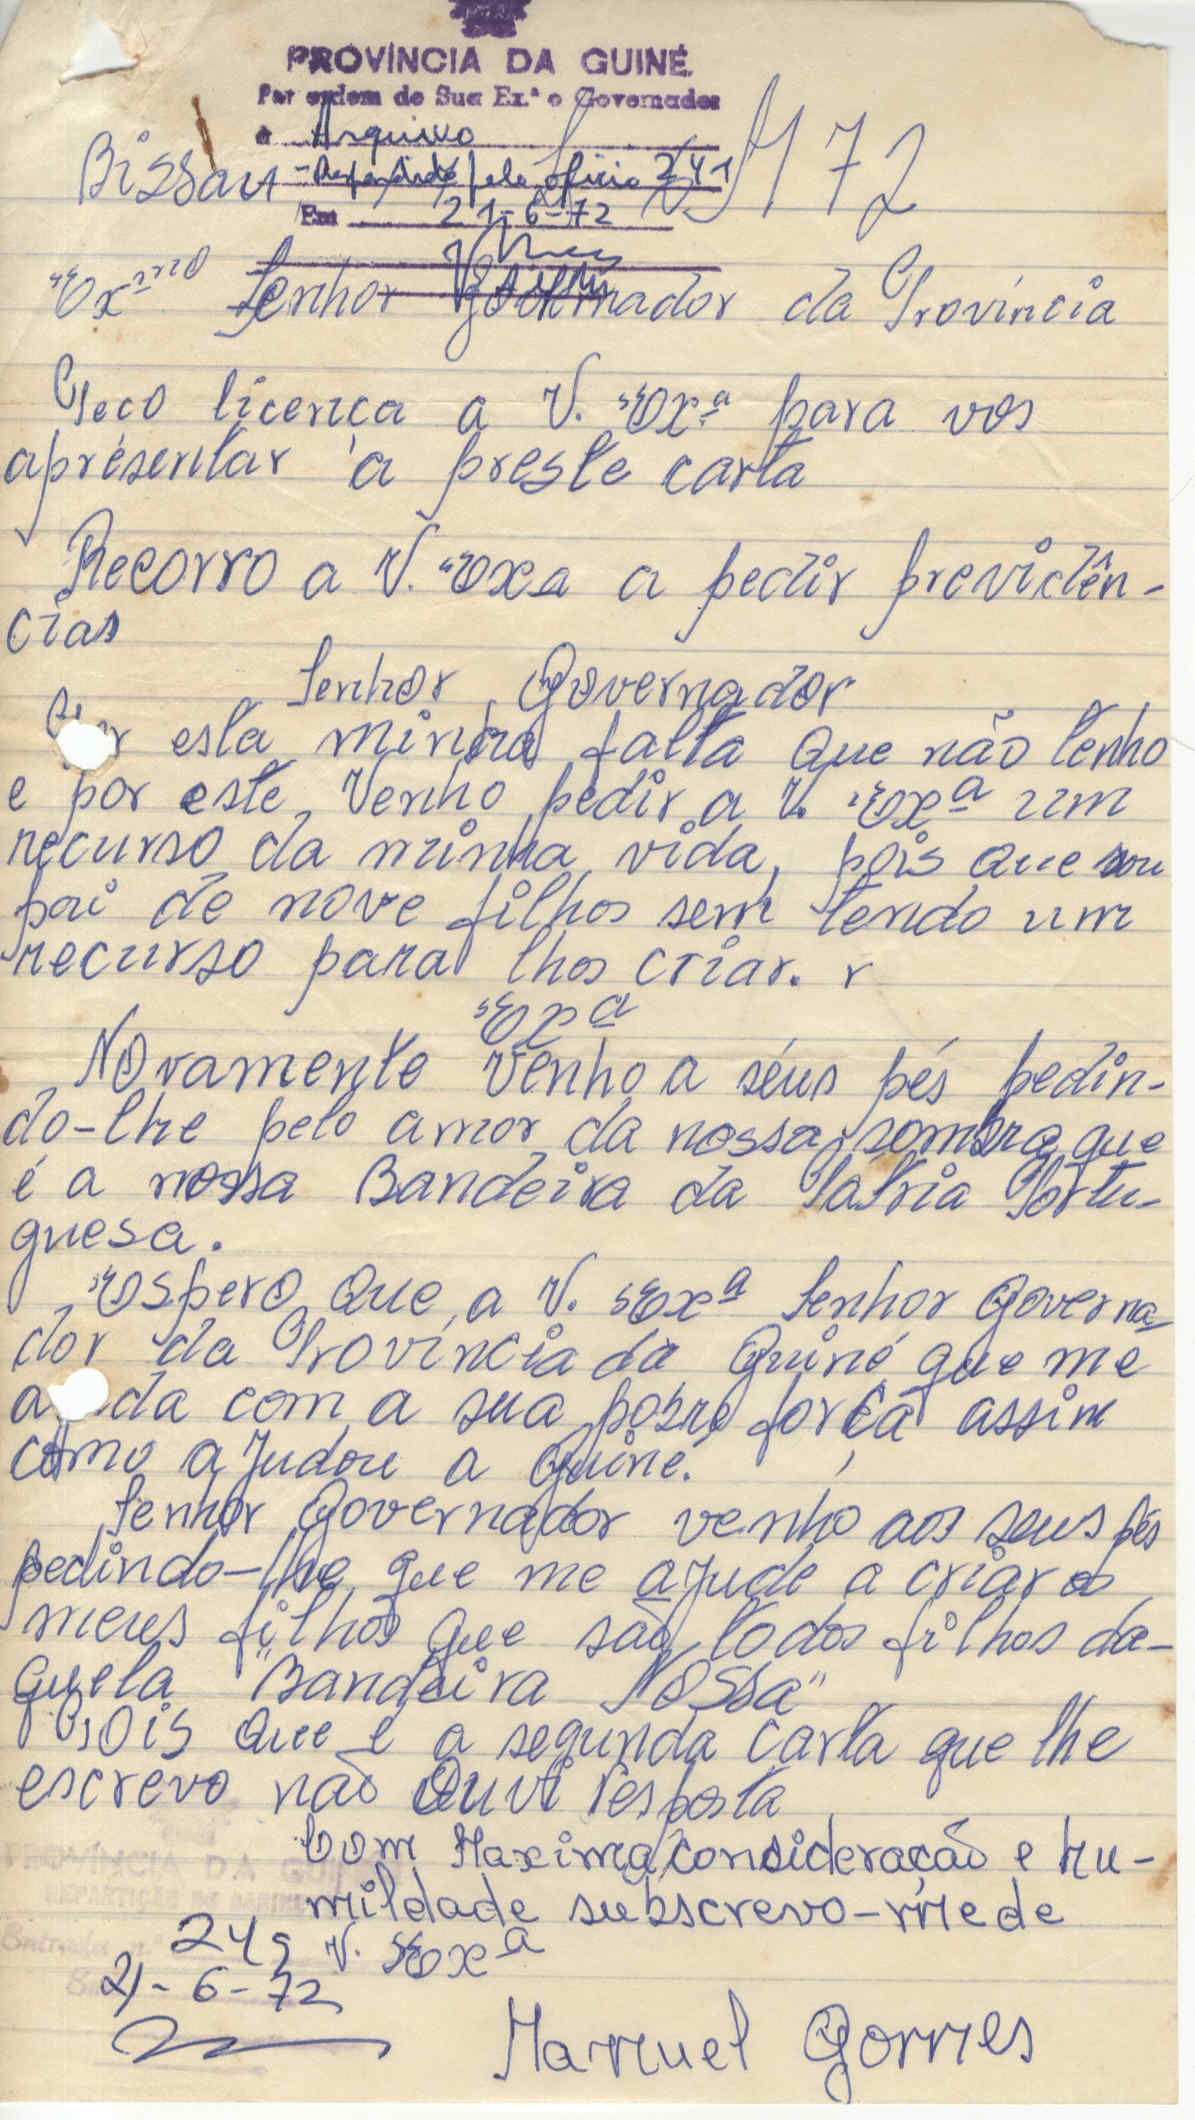 PROVÍNCIA DA GUINÉ
Por ordem de Sua Ex.ª o Governador
Arquivo
- Respondido pelo ofício 241
Em 21-6-72
Bissau 72
Exmo Senhor Governador da Província
Peco licença a V. Exª para vos
apresentar a preste carta
Recorro a V. Exa a pedir previdên-
cias
Senhor Governador
Por esta minha falta que não tenho
e por este venho pedir a V. Exª um
recurso da minha vida, pois que sou
pai de nove filhos sem tendo um
recurso para lhos criar.
Exª
Novamente venho a séus pés pedin-
do-lhe pelo amor da nossa sombra que
é a nossa Bandeira da Patria Portu-
guesa.
Espero que a V. Exª Senhor Governa-
dor da Província da Guiné que me
ajuda com a sua pobre força assim
como ajudou a Guiné.
Senhor Governador venho aos seus pés
pedindo-lhe que me ajude a criar os
meus filhos que são todos filhos da-
quela "Bandeira Nossa"
Pois que e a segunda carta que lhe
escrevo não ouvi resposta
Com Maxima consideração e hu-
mildade subscrevo-me de
V. Exª
PROVÍNCIA DA GUINÉ
REPARTIÇÃO DO GABINETE
Entrada n.º 249
21-6-72
Manuel Gomes